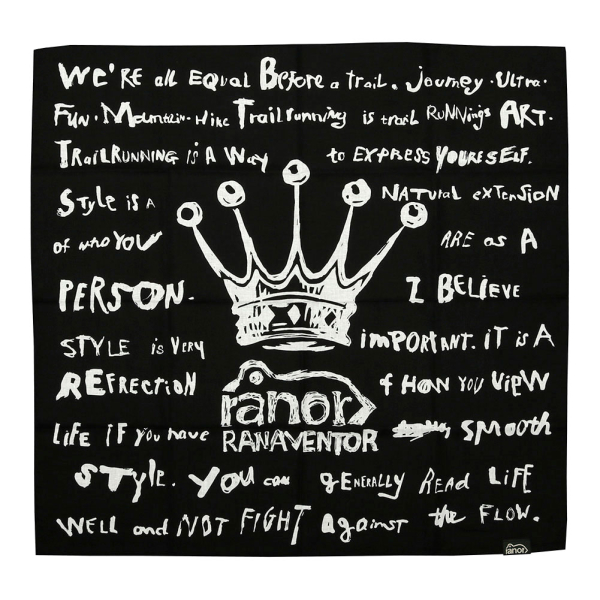 WE'RE all EQUAL Before a trail. Journey. Ultra.
FUN. Mountain. Hike Trailrunning is trail RUNNings ART.
TRAILRUNNING is A Way to EXPRESS YOURESELF.
Style is A NATURAL EXTENSION
of who YOU ARE as A
PERSON. I BELIEVE
STYLE is VERY imPORTANT. iT is A
REFRECTION f HOW YOU VIEW
LiFE iF you have smooth
STYLE. YOU can gENERALLY READ LIFE
WELL and NOT FIGHT against the FLOW.
ranor
RANAVENTOR
ranor